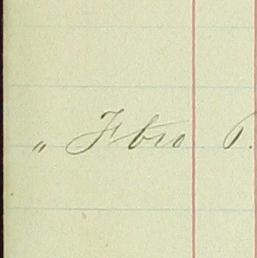 " Fbro 6.